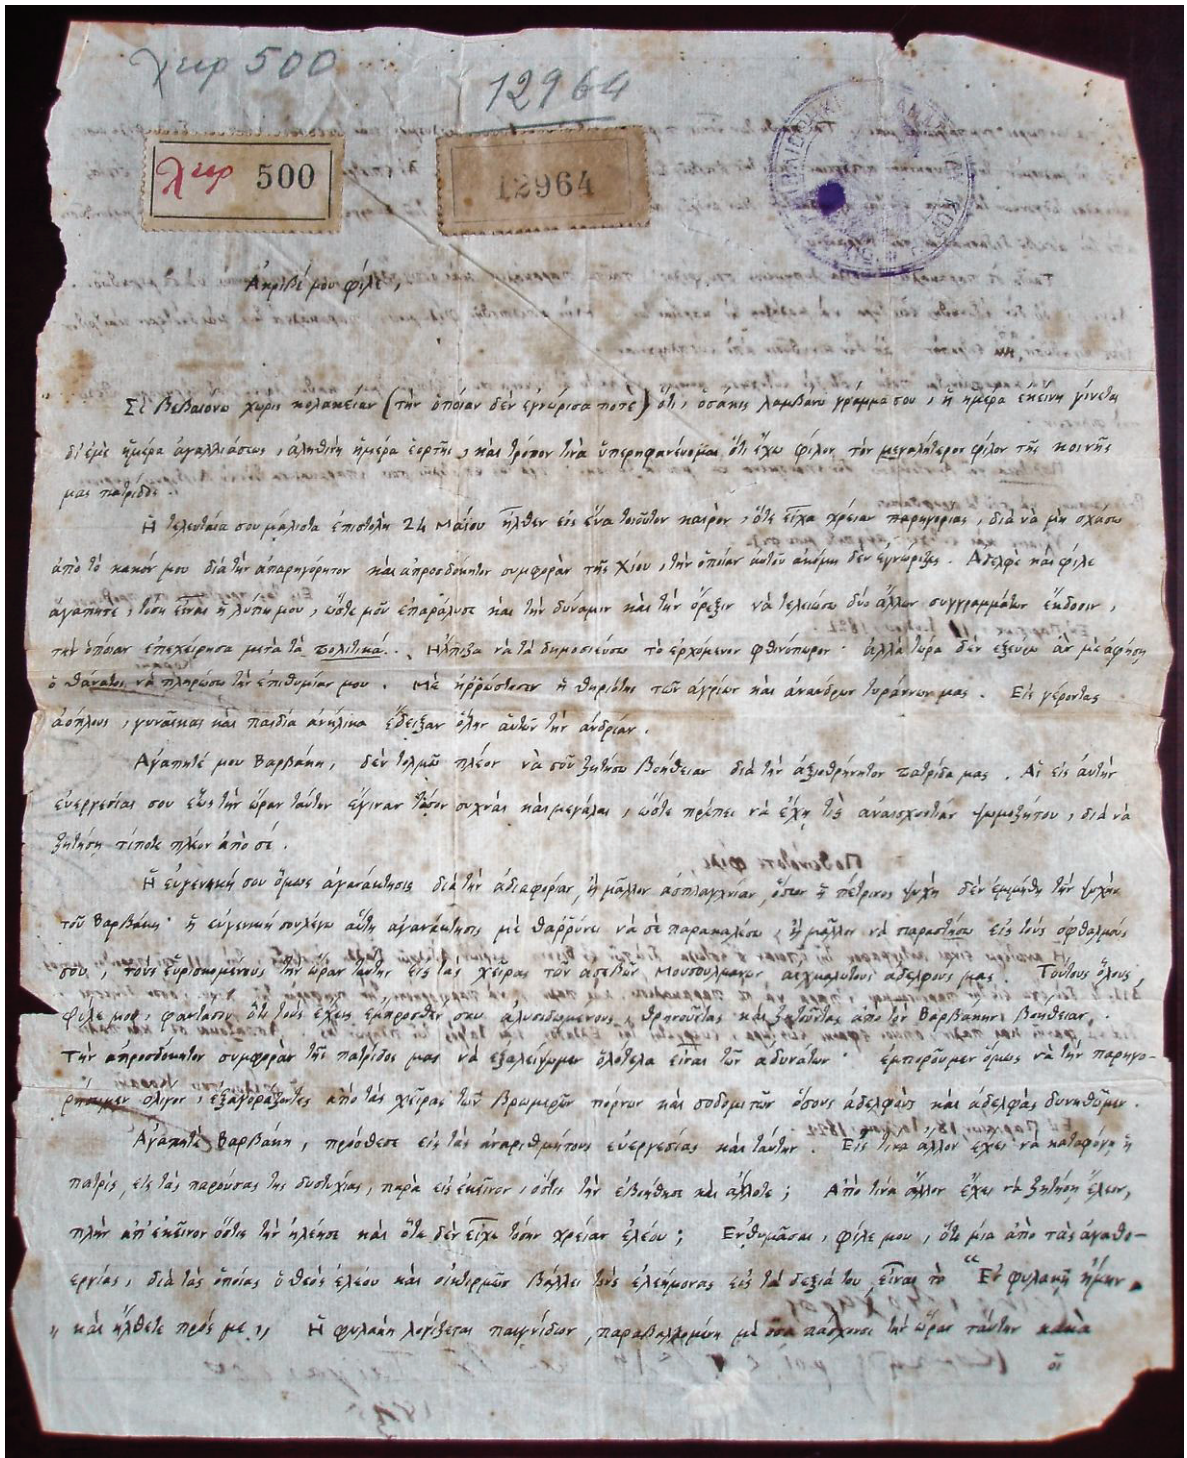 χειρ 500
12964
χειρ 500
12964
Ἀκριβέ μου φίλε,
Σὲ βεβαιόνω χωρὶς κολακείαν (τὴν ὁποίαν δὲν ἐγνώρισα ποτὲ) ὅτι, ὁσάκις λαμβάνω γράμμα σου, ἡ ἡμέρα ἐκείνη γίνεται
δι' ἐμὲ ἡμέρα ἀγαλλιάσεως, ἀληθινὴ ἡμέρα ἑορτῆς, καὶ τρόπον τινὰ ὑπερηφανεύομαι ὅτι ἔχω φίλον τὸν μεγαλήτερον φίλον τῆς κοινῆς
μας πατρίδος.
Ἡ τελευταία σου μάλιστα ἐπιστολὴ 24 Μαΐου ἦλθεν εἰς ἕνα τοιοῦτον καιρὸν, ὅτε εἶχα χρείαν παρηγορίας, διὰ νὰ μὴ σχάσω
ἀπὸ τὸ κακόν μου διὰ τὴν ἀπαρηγόρητον καὶ ἀπροσδόκητον συμφορὰν τῆς Χίου, τὴν ὁποίαν αὐτοῦ ἀκόμη δὲν ἐγνώριζες. Ἀδελφὲ καὶ φίλε
ἀγαπητὲ, τόση εἶναι ἡ λύπη μου, ὥστε μοῦ ἐπαράλυσε καὶ τὴν δύναμιν καὶ τὴν ὄρεξιν νὰ τελειώσω δύο ἄλλων συγγραμμάτων ἔκδοσιν,
τὴν ὁποίαν ἐπεχείρησα μετὰ τὰ πολιτικά. Ἤλπιζα νὰ τὰ δημοσιεύσω τὸ ἐρχόμενον φθινόπωρον· ἀλλὰ τώρα δὲν ἐξεύρω ἂν μὲ ἀφήσῃ
ὁ θάνατος νὰ πληρώσω τὴν ἐπιθυμίαν μου. Μὲ ἠῤῥώστησεν ἡ θηριότης τῶν ἀγρίων καὶ ἀνάνδρων τυράννων μας. Εἰς γέροντας
ἀόπλους, γυναῖκας καὶ παιδία ἀνήλικα ἔδειξαν ὅλην αὐτῶν τὴν ἀνδρίαν.
Ἀγαπητέ μου Βαρβάκη, δὲν τολμῶ πλέον νὰ σοῦ ζητήσω βοήθειαν διὰ τὴν ἀξιοθρήνητον πατρίδα μας. Αἱ εἰς αὐτὴν
εὐεργεσίαι σου ἕως τὴν ὥραν ταύτην ἔγιναν τόσον συχναὶ καὶ μεγάλαι, ὥστε πρέπει νὰ ἔχῃ τις ἀναισχυντίαν ψωμοζήτου, διὰ νὰ
ζητήσῃ τίποτε πλέον ἀπὸ σέ.
Ἡ εὐγενική σου ὅμως ἀγανάκτησις διὰ τὴν ἀδιαφορίαν, ἢ μᾶλλον ἀσπλαγχνίαν, ὅσων ἡ πέτρινος ψυχὴ δὲν ἐμιμήθη τὴν ψυχὴν
τοῦ Βαρβάκη· ἡ εὐγενική σου λέγω αὕτη ἀγανάκτησις μὲ θαῤῥύνει νὰ σὲ παρακαλέσω, ἢ μᾶλλον νὰ παραστήσω εἰς τοὺς ὀφθαλμούς
σου, τοὺς εὑρισκομένους τὴν ὥραν ταύτην εἰς τὰς χεῖρας τῶν ἀσεβῶν Μουσουλμάνων αἰχμαλώτους ἀδελφούς μας. Τούτους ὅλους,
φίλε μου, φαντάσου ὅτι τοὺς ἔχεις ἔμπροσθέν σου ἁλυσιδωμένους, θρηνοῦντας καὶ ζητοῦντας ἀπὸ τὸν Βαρβάκην βοήθειαν.
Τὴν ἀπροσδόκητον συμφορὰν τῆς πατρίδος μας νὰ ἐξαλείψωμεν ὁλότελα εἶναι τῶν ἀδυνάτων· ἐμποροῦμεν ὅμως νὰ τὴν παρηγο-
ρήσωμεν ὀλίγον, ἐξαγοράζοντες ἀπὸ τὰς χεῖρας τῶν βρωμερῶν πόρνων καὶ σοδομιτῶν ὅσους ἀδελφοὺς καὶ ἀδελφὰς δυνηθῶμεν.
Ἀγαπητὲ Βαρβάκη, πρόσθεσε εἰς τὰς ἀναριθμήτους εὐεργεσίας καὶ ταύτην. Εἰς τίνα ἄλλον ἔχει νὰ καταφύγῃ ἡ
πατρὶς, εἰς τὰς παρούσας της δυστυχίας, παρὰ εἰς ἐκεῖνον, ὅστις τὴν ἐβοήθησε καὶ ἄλλοτε; Ἀπὸ τίνα ἄλλον ἔχει νὰ ζητήσῃ ἔλεον,
πλὴν ἀπ' ἐκεῖνον ὅστις τὴν ἠλέησε καὶ ὅτε δὲν εἶχε τόσην χρείαν ἐλέου; Ἐνθυμᾶσαι, φίλε μου, ὅτι μία ἀπὸ τὰς ἀγαθο-
εργίας, διὰ τὰς ὁποίας ὁ θεὸς ἐλέου καὶ οἰκτιρμῶν βάλλει τοὺς ἐλεήμονας εἰς τὰ δεξιά του, εἶναι τὸ “Ἐν φυλακῇ ἤμην
„ καὶ ἤλθετε πρός με„ Ἡ φυλακὴ λογίζεται παιγνίδιον, παραβαλλομένη μὲ ὅσα πάσχουσι τὴν ὥραν ταύτην κακὰ
οἱ